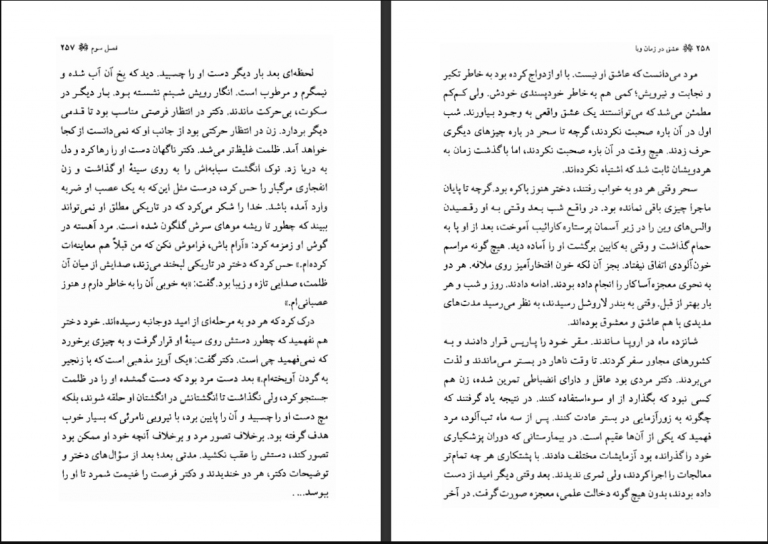 فصل سوم ۲۵۷
لحظه‌ای بعد بار دیگر دست او را چسبید. دید که یخ آن آب شده و
نیمگرم و مرطوب است. انگار رویش شبنم نشسته بود. بار دیگر در
سکوت، بی‌حرکت ماندند. دکتر در انتظار فرصتی مناسب بود تا قدمی
دیگر بردارد. زن در انتظار حرکتی بود از جانب او که نمی‌دانست از کجا
خواهد آمد. ظلمت غلیظ‌تر می‌شد. دکتر ناگهان دست او را رها کرد و دل
به دریا زد. نوک انگشت سبابه‌اش را به روی سینهٔ او گذاشت و زن
انفجاری مرگبار را حس کرد، درست مثل این‌که به یک عصب او ضربه
وارد آمده باشد. خدا را شکر می‌کرد که در تاریکی مطلق او نمی‌تواند
ببیند که چطور تا ریشه موهای سرش گلگون شده است. مرد آهسته در
گوش او زمزمه کرد: «آرام باش، فراموش نکن که من قبلاً هم معاینه‌ات
کرده‌ام.» حس کرد که دختر در تاریکی لبخند می‌زند، صدایش از میان آن
ظلمت، صدایی تازه و زیبا بود. گفت: «به خوبی آن را به خاطر دارم و هنوز
عصبانی‌ام.»
درک کرد که هر دو به مرحله‌ای از امید دوجانبه رسیده‌اند. خود دختر
هم نفهمید که چطور دستش روی سینهٔ او قرار گرفت و به چیزی برخورد
که نمی‌فهمید چی است. دکتر گفت: «یک آویز مذهبی است که با زنجیر
به گردن آویخته‌ام.» بعد دست مرد بود که دست گمشده او را در ظلمت
جستجو کرد، ولی نگذاشت تا انگشتانش در انگشتان او حلقه شوند، بلکه
مچ دست او را چسبید و آن را پایین برد، با نیرویی نامرئی که بسیار خوب
هدف گرفته بود. برخلاف تصور مرد و برخلاف آنچه خود او ممکن بود
تصور کند، دستش را عقب نکشید. مدتی بعد؛ بعد از سؤال‌های دختر و
توضیحات دکتر، هر دو خندیدند و دکتر فرصت را غنیمت شمرد تا او را
ببوسد....
۲۵۸ عشق در زمان وبا
مرد می‌دانست که عاشق او نیست. با او ازدواج کرده بود به خاطر تکبر
و نجابت و نیرویش؛ کمی هم به خاطر خودپسندی خودش. ولی کم‌کم
مطمئن می‌شد که می‌توانستند یک عشق واقعی به وجود بیاورند. شب
اول در آن باره صحبت نکردند، گرچه تا سحر در باره چیزهای دیگری
حرف زدند. هیچ وقت در آن باره صحبت نکردند، اما با گذشت زمان به
هر دویشان ثابت شد که اشتباه نکرده‌اند.
سحر وقتی هر دو به خواب رفتند، دختر هنوز باکره بود. گرچه تا پایان
ماجرا چیزی باقی نمانده بود. در واقع شب بعد وقتی به او رقصیدن
والس‌های وین را در زیر آسمان پرستاره کارائیب آموخت، بعد از او پا به
حمام گذاشت و وقتی به کابین برگشت او را آماده دید. هیچ گونه مراسم
خون‌آلودی اتفاق نیفتاد. بجز آن لکه خون افتخارآمیز روی ملافه. هر دو
به نحوی معجزه‌آسا کار را انجام داده بودند. ادامه دادند. روز و شب و هر
بار بهتر از قبل. وقتی به بندر لاروشل رسیدند، به نظر می‌رسید مدت‌های
مدیدی با هم عاشق و معشوق بوده‌اند.
شانزده ماه در اروپا ماندند. مقر خود را پاریس قرار دادند و به
کشورهای مجاور سفر کردند. تا وقت ناهار در بستر می‌ماندند و لذت
می‌بردند. دکتر مردی بود عاقل و دارای انضباطی تمرین شده، زن هم
کسی نبود که بگذارد از او سوءاستفاده کنند. در نتیجه یاد گرفتند که
چگونه به زورآزمایی در بستر عادت کنند. پس از سه ماه تب‌آلود، مرد
فهمید که یکی از آن‌ها عقیم است. در بیمارستانی که دوران پزشکیاری
خود را گذرانده بود آزمایشات مختلف دادند. با پشتکاری هر چه تمام‌تر
معالجات را اجرا کردند، ولی ثمری ندیدند. بعد وقتی دیگر امید از دست
داده بودند، بدون هیچ گونه دخالت علمی، معجزه صورت گرفت. در آخر